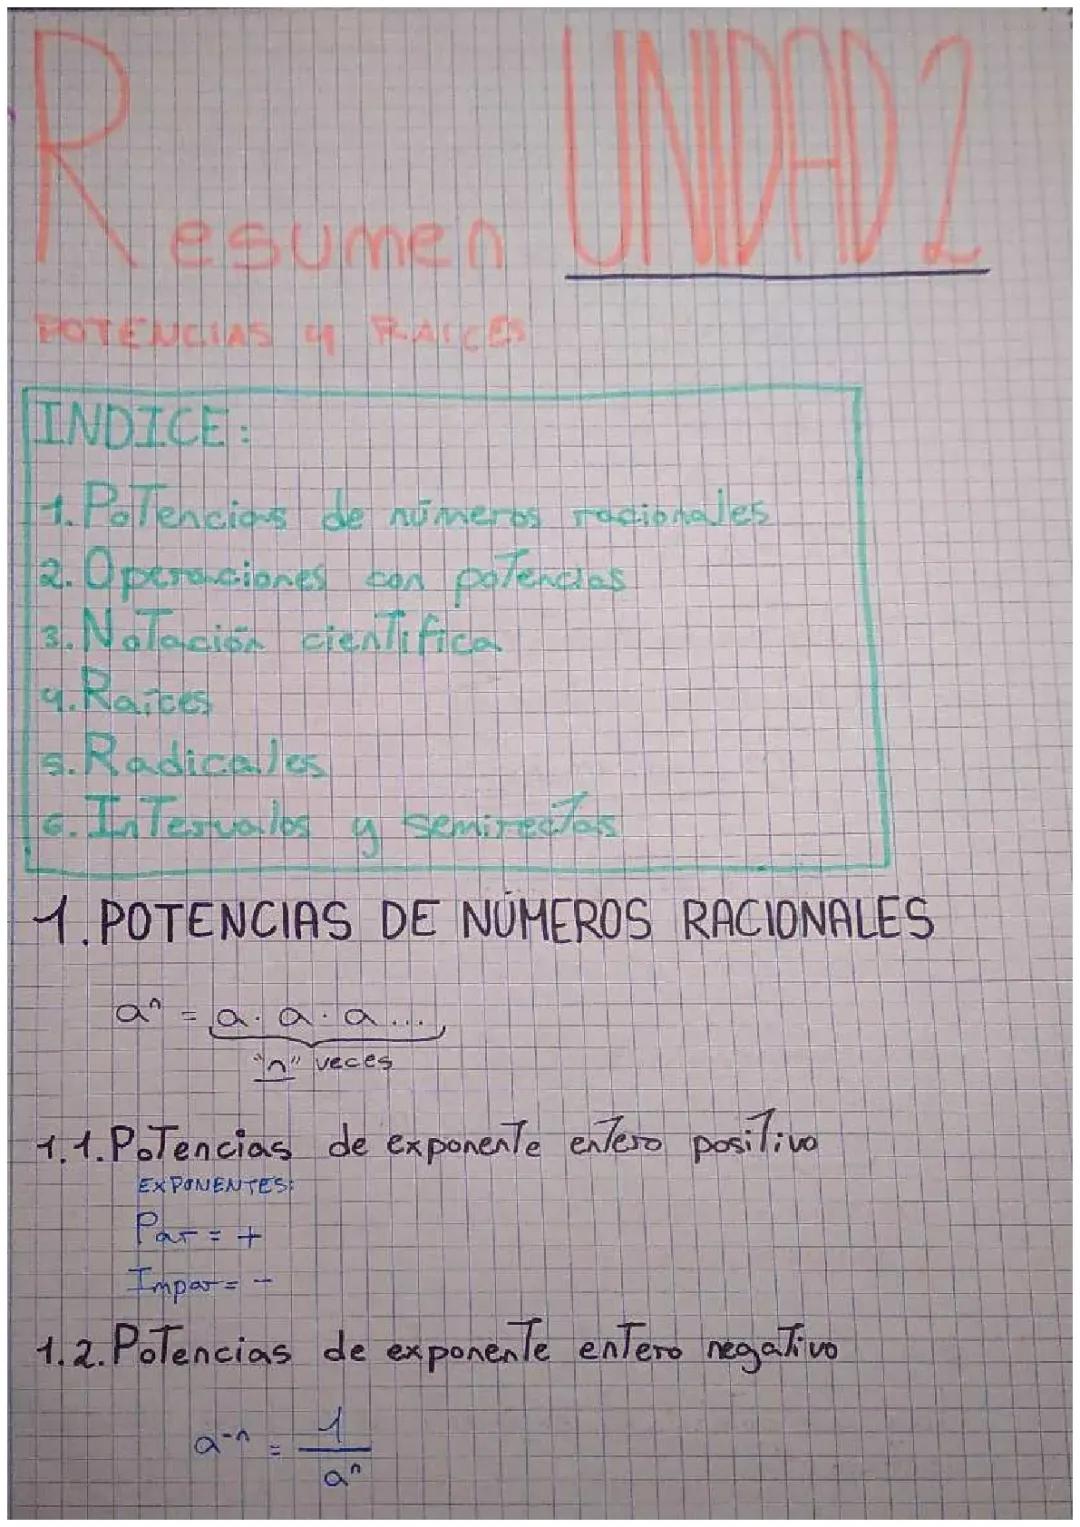 Resumen UNIDAD 2
POTENCIAS y RAICES
INDICE:
1. Potencias de números racionales
2. Operaciones con potencias
3. Notación científica
4. Raíces
5. Radicales
6. Intervalos y semirectas
1. POTENCIAS DE NÚMEROS RACIONALES
aⁿ = a · a · a ...
"n" veces
1.1. Potencias de exponente entero positivo
EXPONENTES:
Par = +
Impar = -
1.2. Potencias de exponente entero negativo
a⁻ⁿ = 1/aⁿ